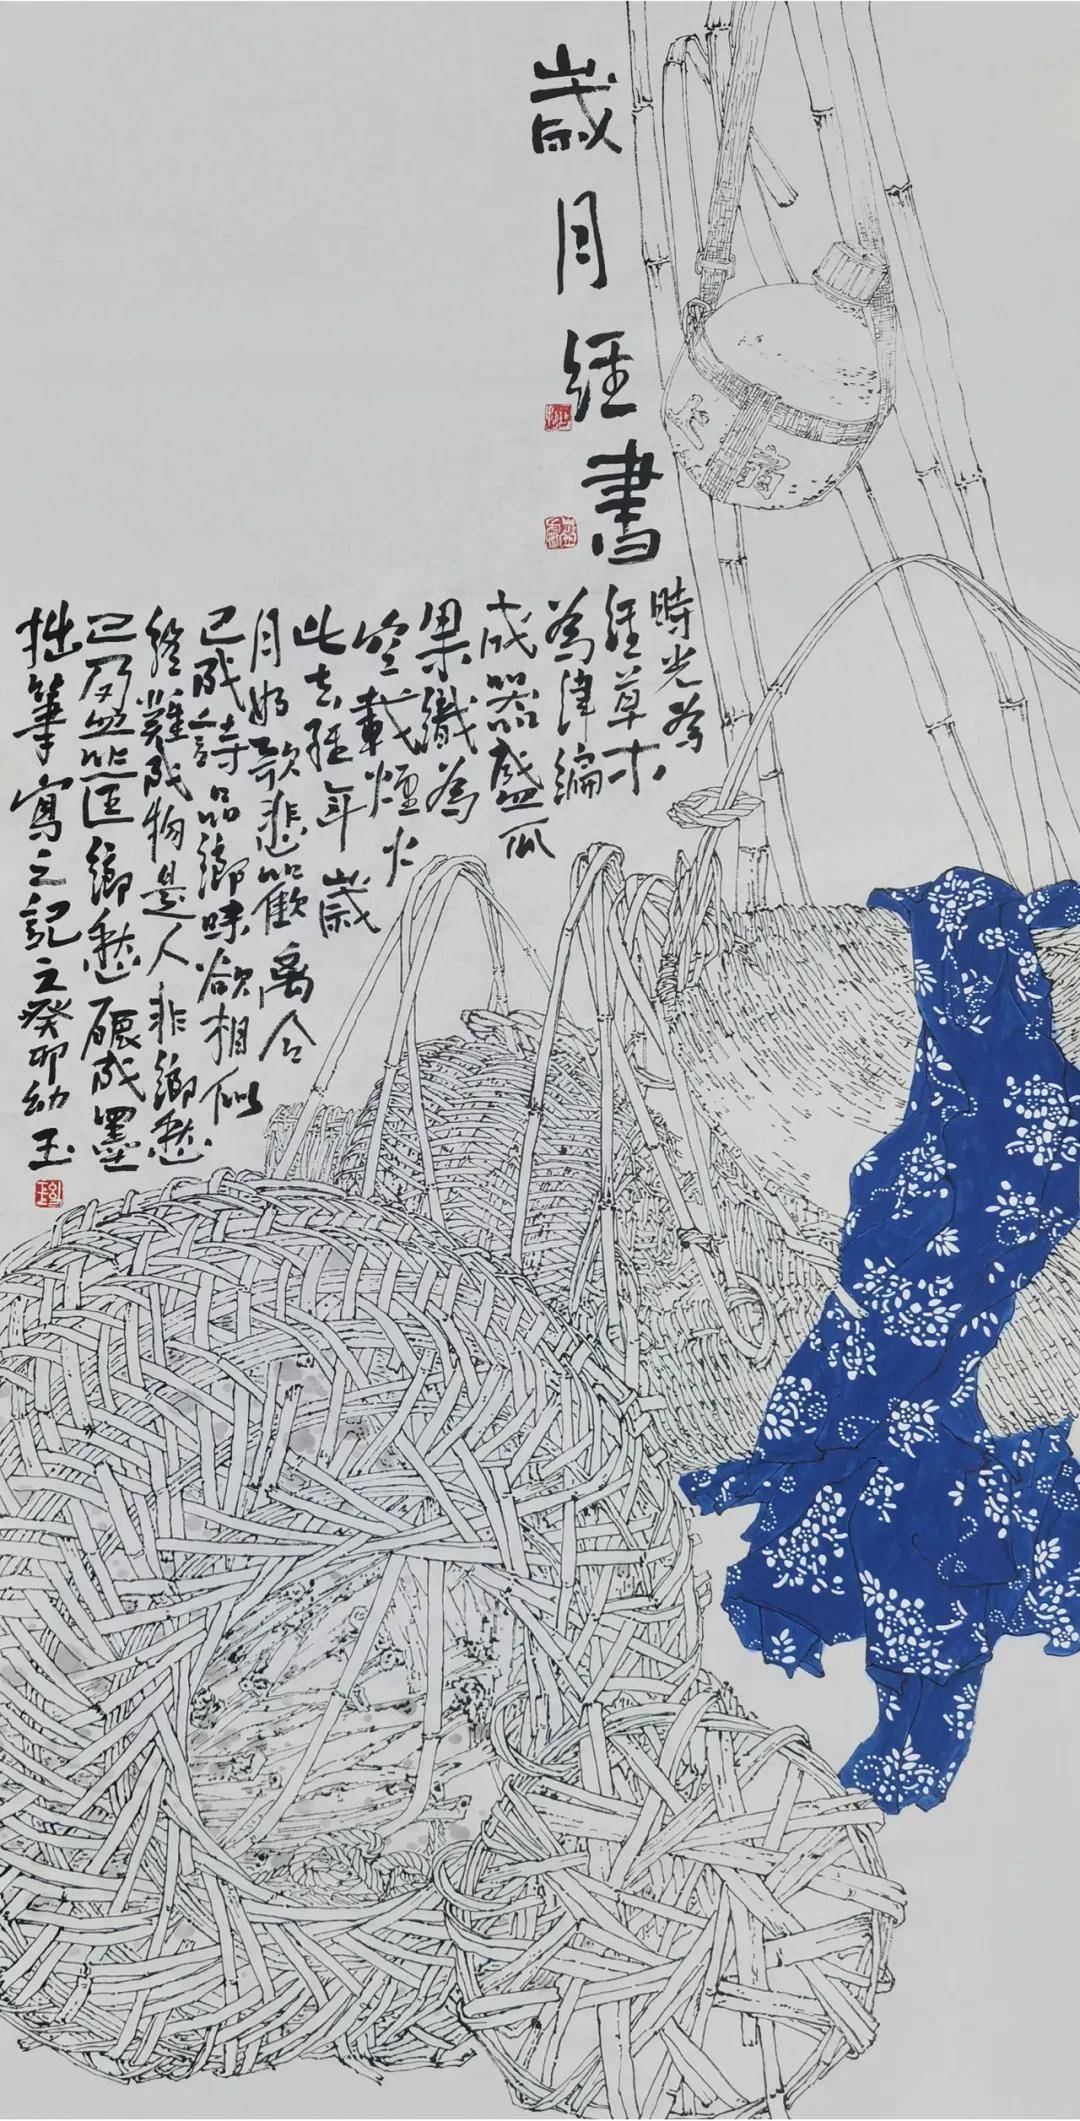 歲月經書
時光為
經草木
為津編
成器盛瓜
果織為
空載煙火
此去經年歲
月如歌悲歡离合
已成詩品鄉味欲相似
終難成物是人非鄉愁
鄉愁碾成墨
拙筆寫之記之癸卯幼玉